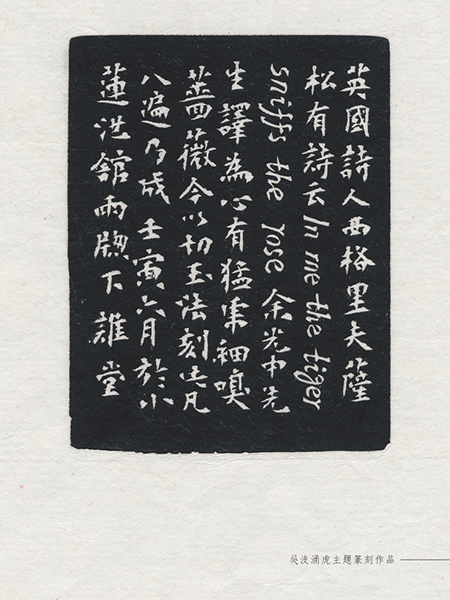 英國詩人西格里夫薩
松有詩云In me the tiger
sniffs the rose余光中先
生譯為心有猛虎細嗅
薔薇今以切玉法刻之凡
八遍乃成壬寅六月於小
蓮池館雨牕下誰堂
吳波涌虎主題篆刻作品